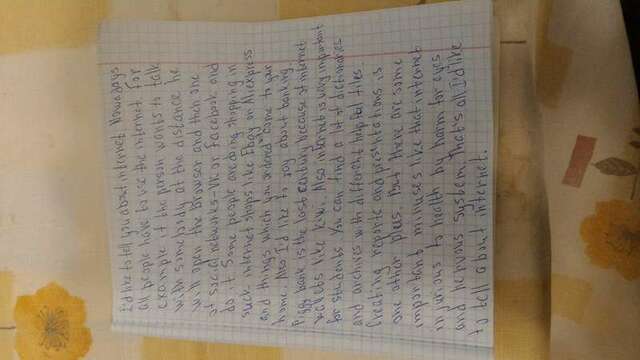 I'd like to tell you about internet. Nowadays
all people have to use the internet. For
example if the person wants to talk
with somebody at the distance he
will open the browser and then one
of social networks VK or Facebook and
do it. Some people are doing shopping in
such internet shops like Ebay or Aliexpress
and things which you ordered come to your
home. Also I'd like to say about banking.
Piggy bank is the last century because of internet
wallets like kiwi. Also internet is very important
for students. You can find a lot of dictionaries
and archives with different helpful files
Creating reports and presentations is
one other plus. But there are some
important minuses like that internet
injurious to health by harm for eyes
and nervous system. That's all I'd like
to tell about internet.